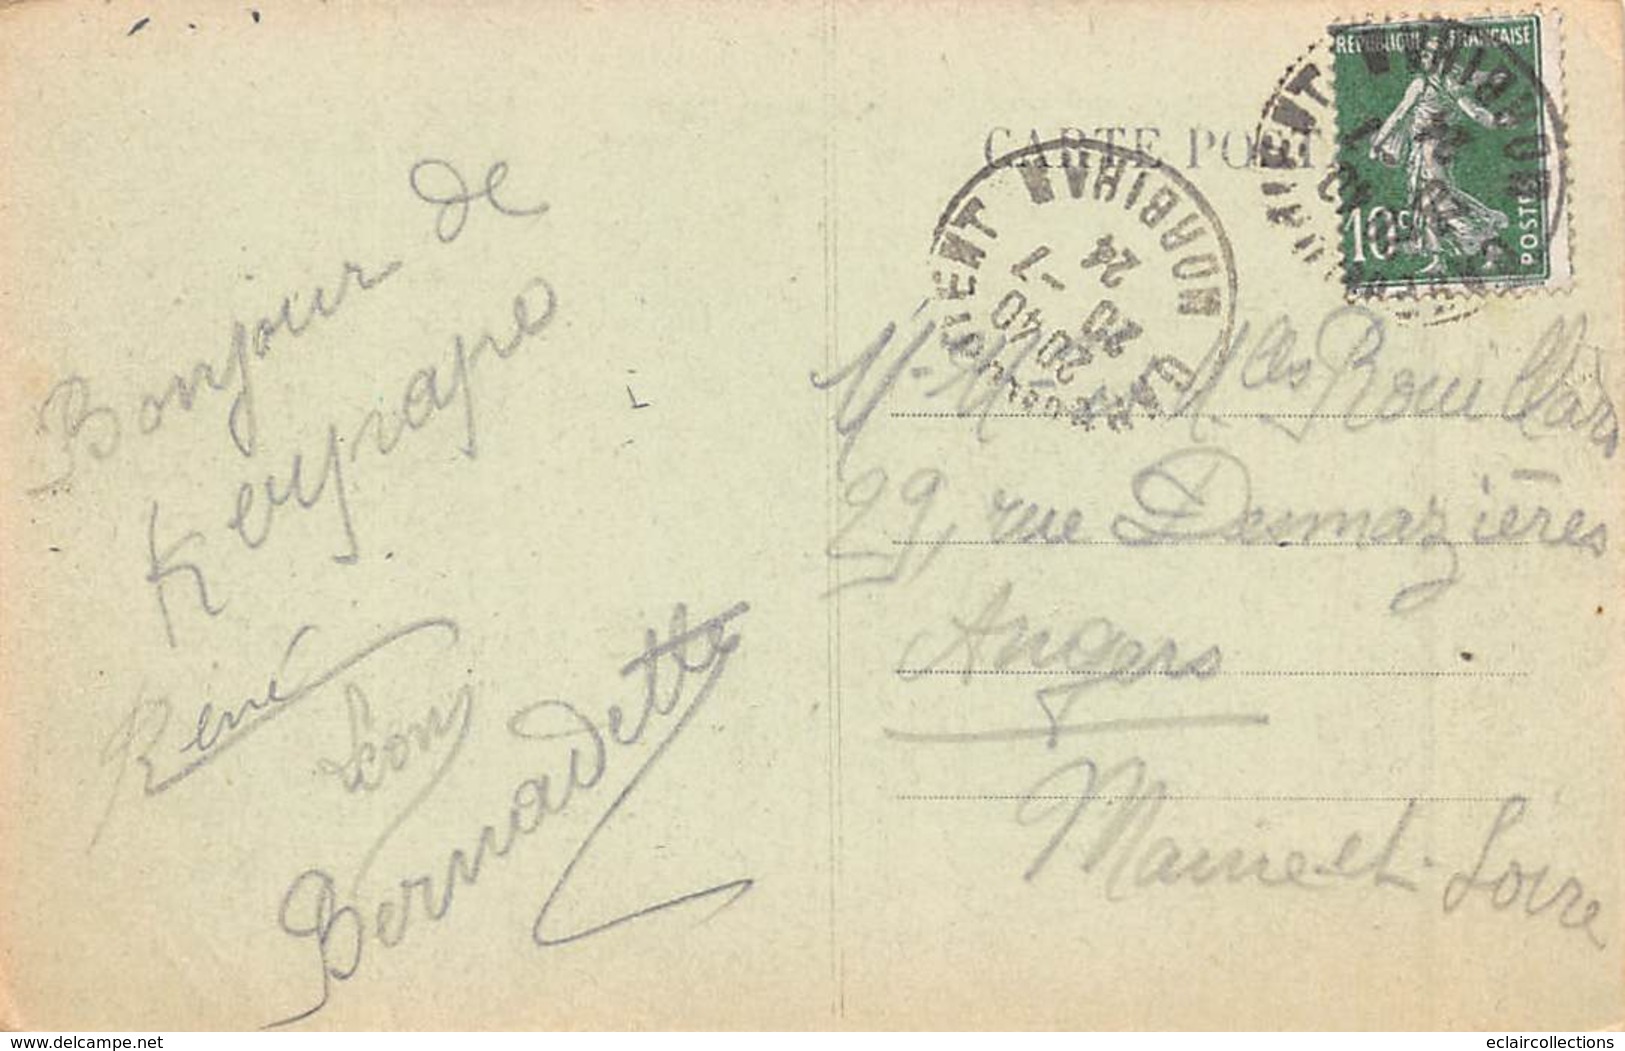 Bonjour de
Kerpape
René
Léon
Bernadette
CARTE POST
REPUBLIQUE FRANÇAISE
10c
POSTES
LORIENT GARE
MORBIHAN
20 40
20 -7
24
M. Mme Mlles Rouillard
29, rue Desmazières
Angers
Maine-et-Loire
www.delcampe.net
eclaircollections